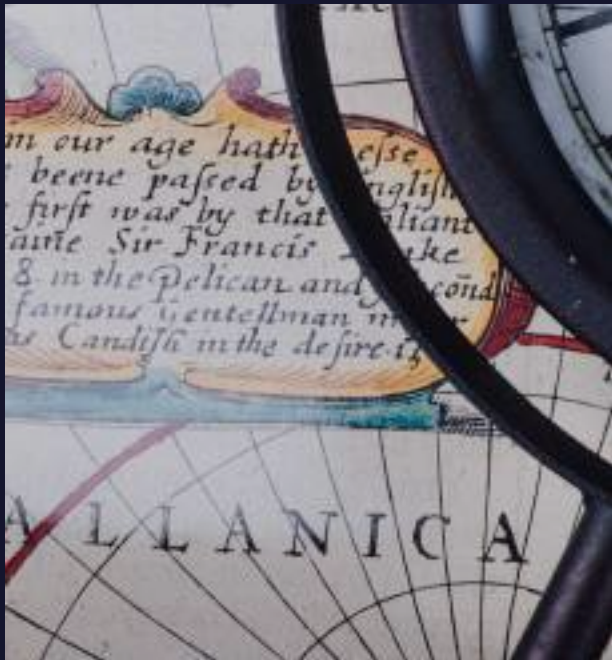 m our age hath esse
beene passed by nglish
first was by that aliant
Sir Francis
8 in the Pelican and cond
famous Gentellman
Candish in the desire.
ALLANICA